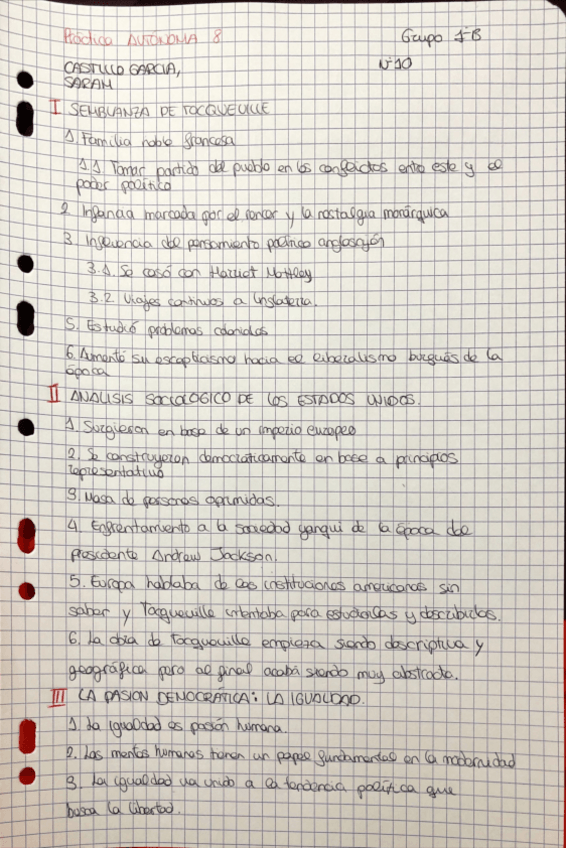 Práctica AUTÓNOMA 8 Grupo 1ºB
CASTILLO GARCIA, Nº10
SARAH
I SEMBLANZA DE TOCQUEVILLE
1. Familia noble francesa
1.1 Tomar partido del pueblo en los conflictos entre este y el
poder político
2. Infancia marcada por el rencor y la nostalgia monárquica
3. Influencia del pensamiento político anglosajón
3.1. Se casó con Harriot Mottley
3.2. Viajes continuos a Inglaterra.
5. Estudió problemas coloniales
6. Aumentó su escepticismo hacia el liberalismo burgués de la
época
II ANALISIS SOCIOLOGICO DE LOS ESTADOS UNIDOS.
1. Surgieron en base de un imperio europeo
2. Se construyeron democráticamente en base a principios
representativo
3. Masa de personas oprimidas.
4. Enfrentamiento a la sociedad yanqui de la época del
presidente Andrew Jackson.
5. Europa hablaba de las instituciones americanas sin
saber y Tocqueville intentaba para estudiarlas y describirlas.
6. La obra de Tocqueville empieza siendo descriptiva y
geográfica pero al final acaba siendo muy abstracta.
III LA PASION DEMOCRATICA: LA IGUALDAD.
1. La igualdad es pasión humana.
2. Las mentes humanas tienen un papel fundamental en la modernidad
3. La igualdad va unido a la tendencia política que
busca la libertad.